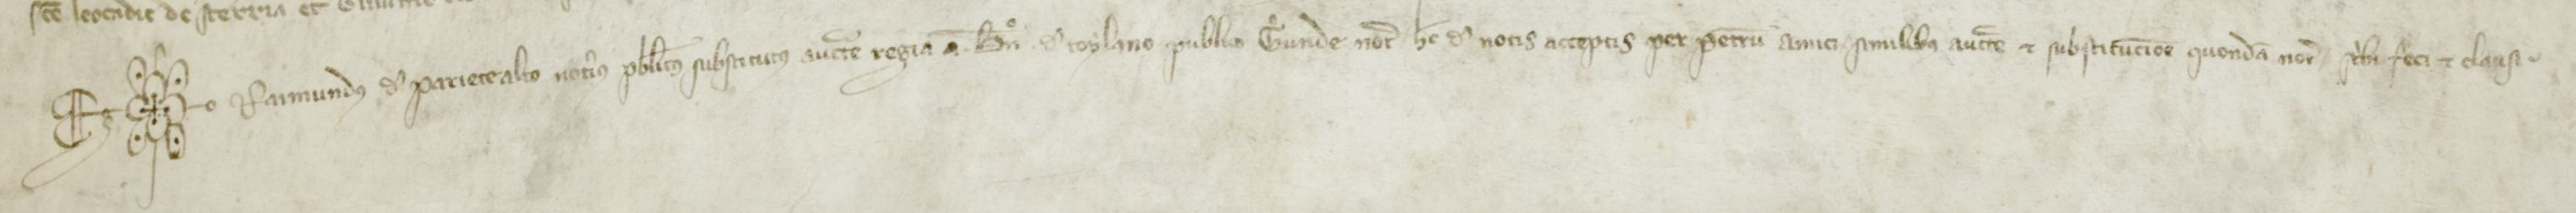 sce leocadie de sterria et
Eg o Raimundus d' parietealto notrius pblicus substitutus aucte regia a Bn° d' toylano publico Gerunde not hec d' notis acceptis per petrum amici similibus aucte et substitucione quondam not scribi feci et clausi